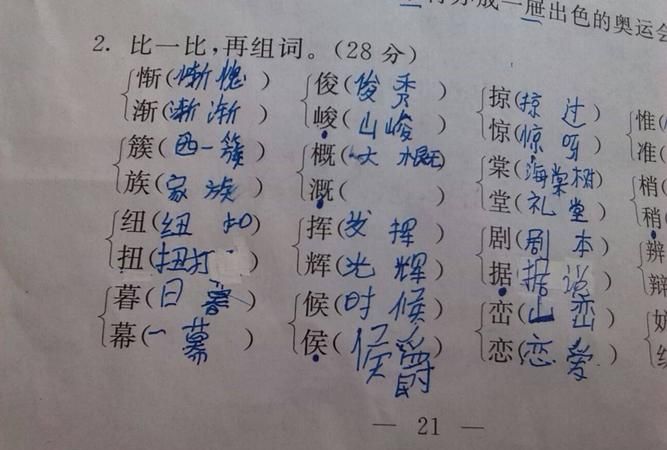 成一屉出色的奥运会
2. 比一比,再组词。(28分)
惭(惭愧) 俊(俊秀) 掠(掠过) 惟(
渐(渐渐) 峻(山峻) 惊(惊呀) 准(
簇(一簇) 概(大概) 棠(海棠树) 梢(
族(家族) 溉( ) 堂(礼堂) 稍(
纽(纽扣) 挥(发挥) 剧(剧本) 辨
扭(扭打) 辉(光辉) 据(据说) 辩
暮(日暮) 候(时候) 峦(山峦)
幕(一幕) 侯(侯爵) 恋(恋爱)
— 21 —